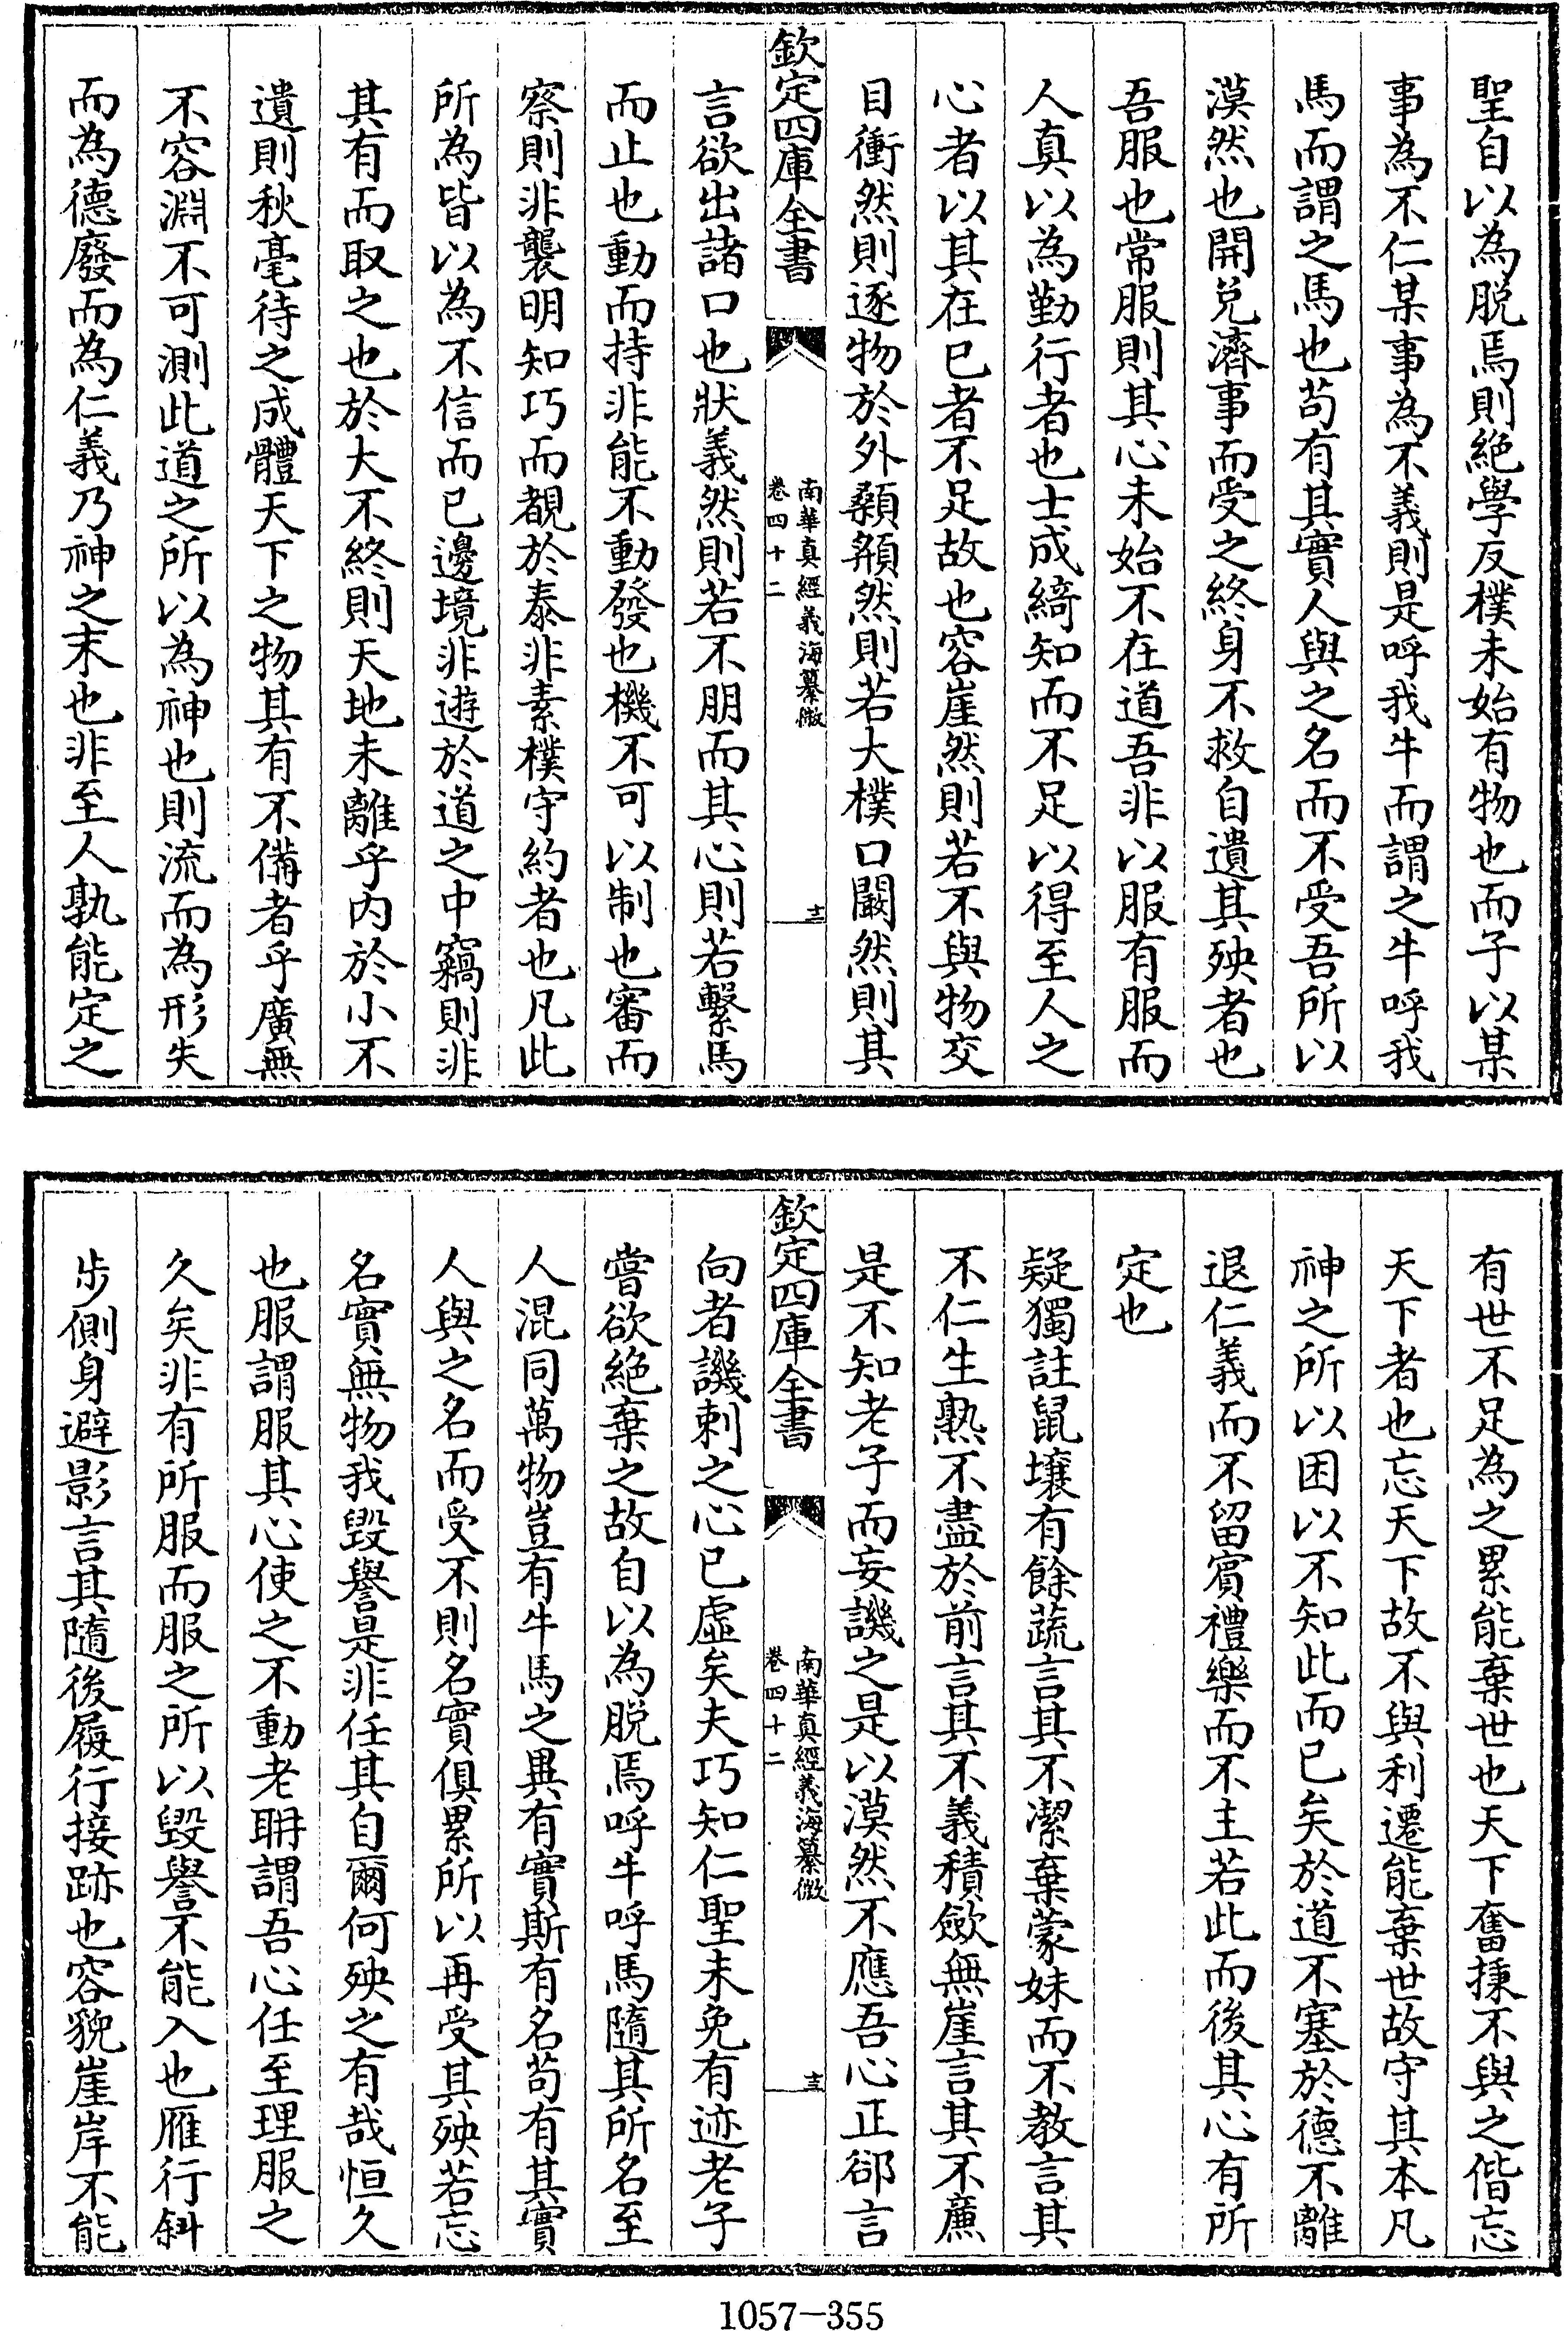 聖自以為脱焉則絶學反樸未始有物也而子以某
事為不仁某事為不義則是呼我牛而謂之牛呼我
馬而謂之馬也苟有其實人與之名而不受吾所以
漠然也開兌濟事而受之終身不救自遺其殃者也
吾服也常服則其心未始不在道吾非以服有服而
人真以為勤行者也士成綺知而不足以得至人之
心者以其在已者不足故也容崖然則若不與物交
目衝然則逐物於外顙頯然則若大樸口闞然則其
欽定四庫全書
南華真經義海纂微
卷四十二
十三
言欲出諸口也狀義然則若不朋而其心則若繫馬
而止也動而持非能不動發也機不可以制也審而
察則非襲明知巧而覩於泰非素樸守約者也凡此
所為皆以為不信而已邊境非遊於道之中竊則非
其有而取之也於大不終則天地未離乎内於小不
遺則秋毫待之成體天下之物其有不備者乎廣無
不容淵不可測此道之所以為神也則流而為形失
而為德廢而為仁義乃神之末也非至人孰能定之
有世不足為之累能棄世也天下奮揀不與之偕忘
天下者也忘天下故不與利遷能棄世故守其本凡
神之所以困以不知此而已矣於道不塞於德不離
退仁義而不留賓禮樂而不主若此而後其心有所
定也
疑獨註鼠壤有餘蔬言其不潔棄蒙妹而不教言其
不仁生熟不盡於前言其不義積斂無崖言其不廉
是不知老子而妄譏之是以漠然不應吾心正郤言
欽定四庫全書
南華真經義海纂微
卷四十二
十三
向者譏刺之心已虛矣夫巧知仁聖未免有迹老子
嘗欲絶棄之故自以為脱焉呼牛呼馬隨其所名至
人混同萬物豈有牛馬之異有實斯有名苟有其實
人與之名而受不則名實俱累所以再受其殃若忘
名實無物我毀譽是非任其自爾何殃之有哉恒久
也服謂服其心使之不動老聃謂吾心任至理服之
久矣非有所服而服之所以毀譽不能入也雁行斜
步側身避影言其隨後履行接跡也容貌崖岸不能
1057-355